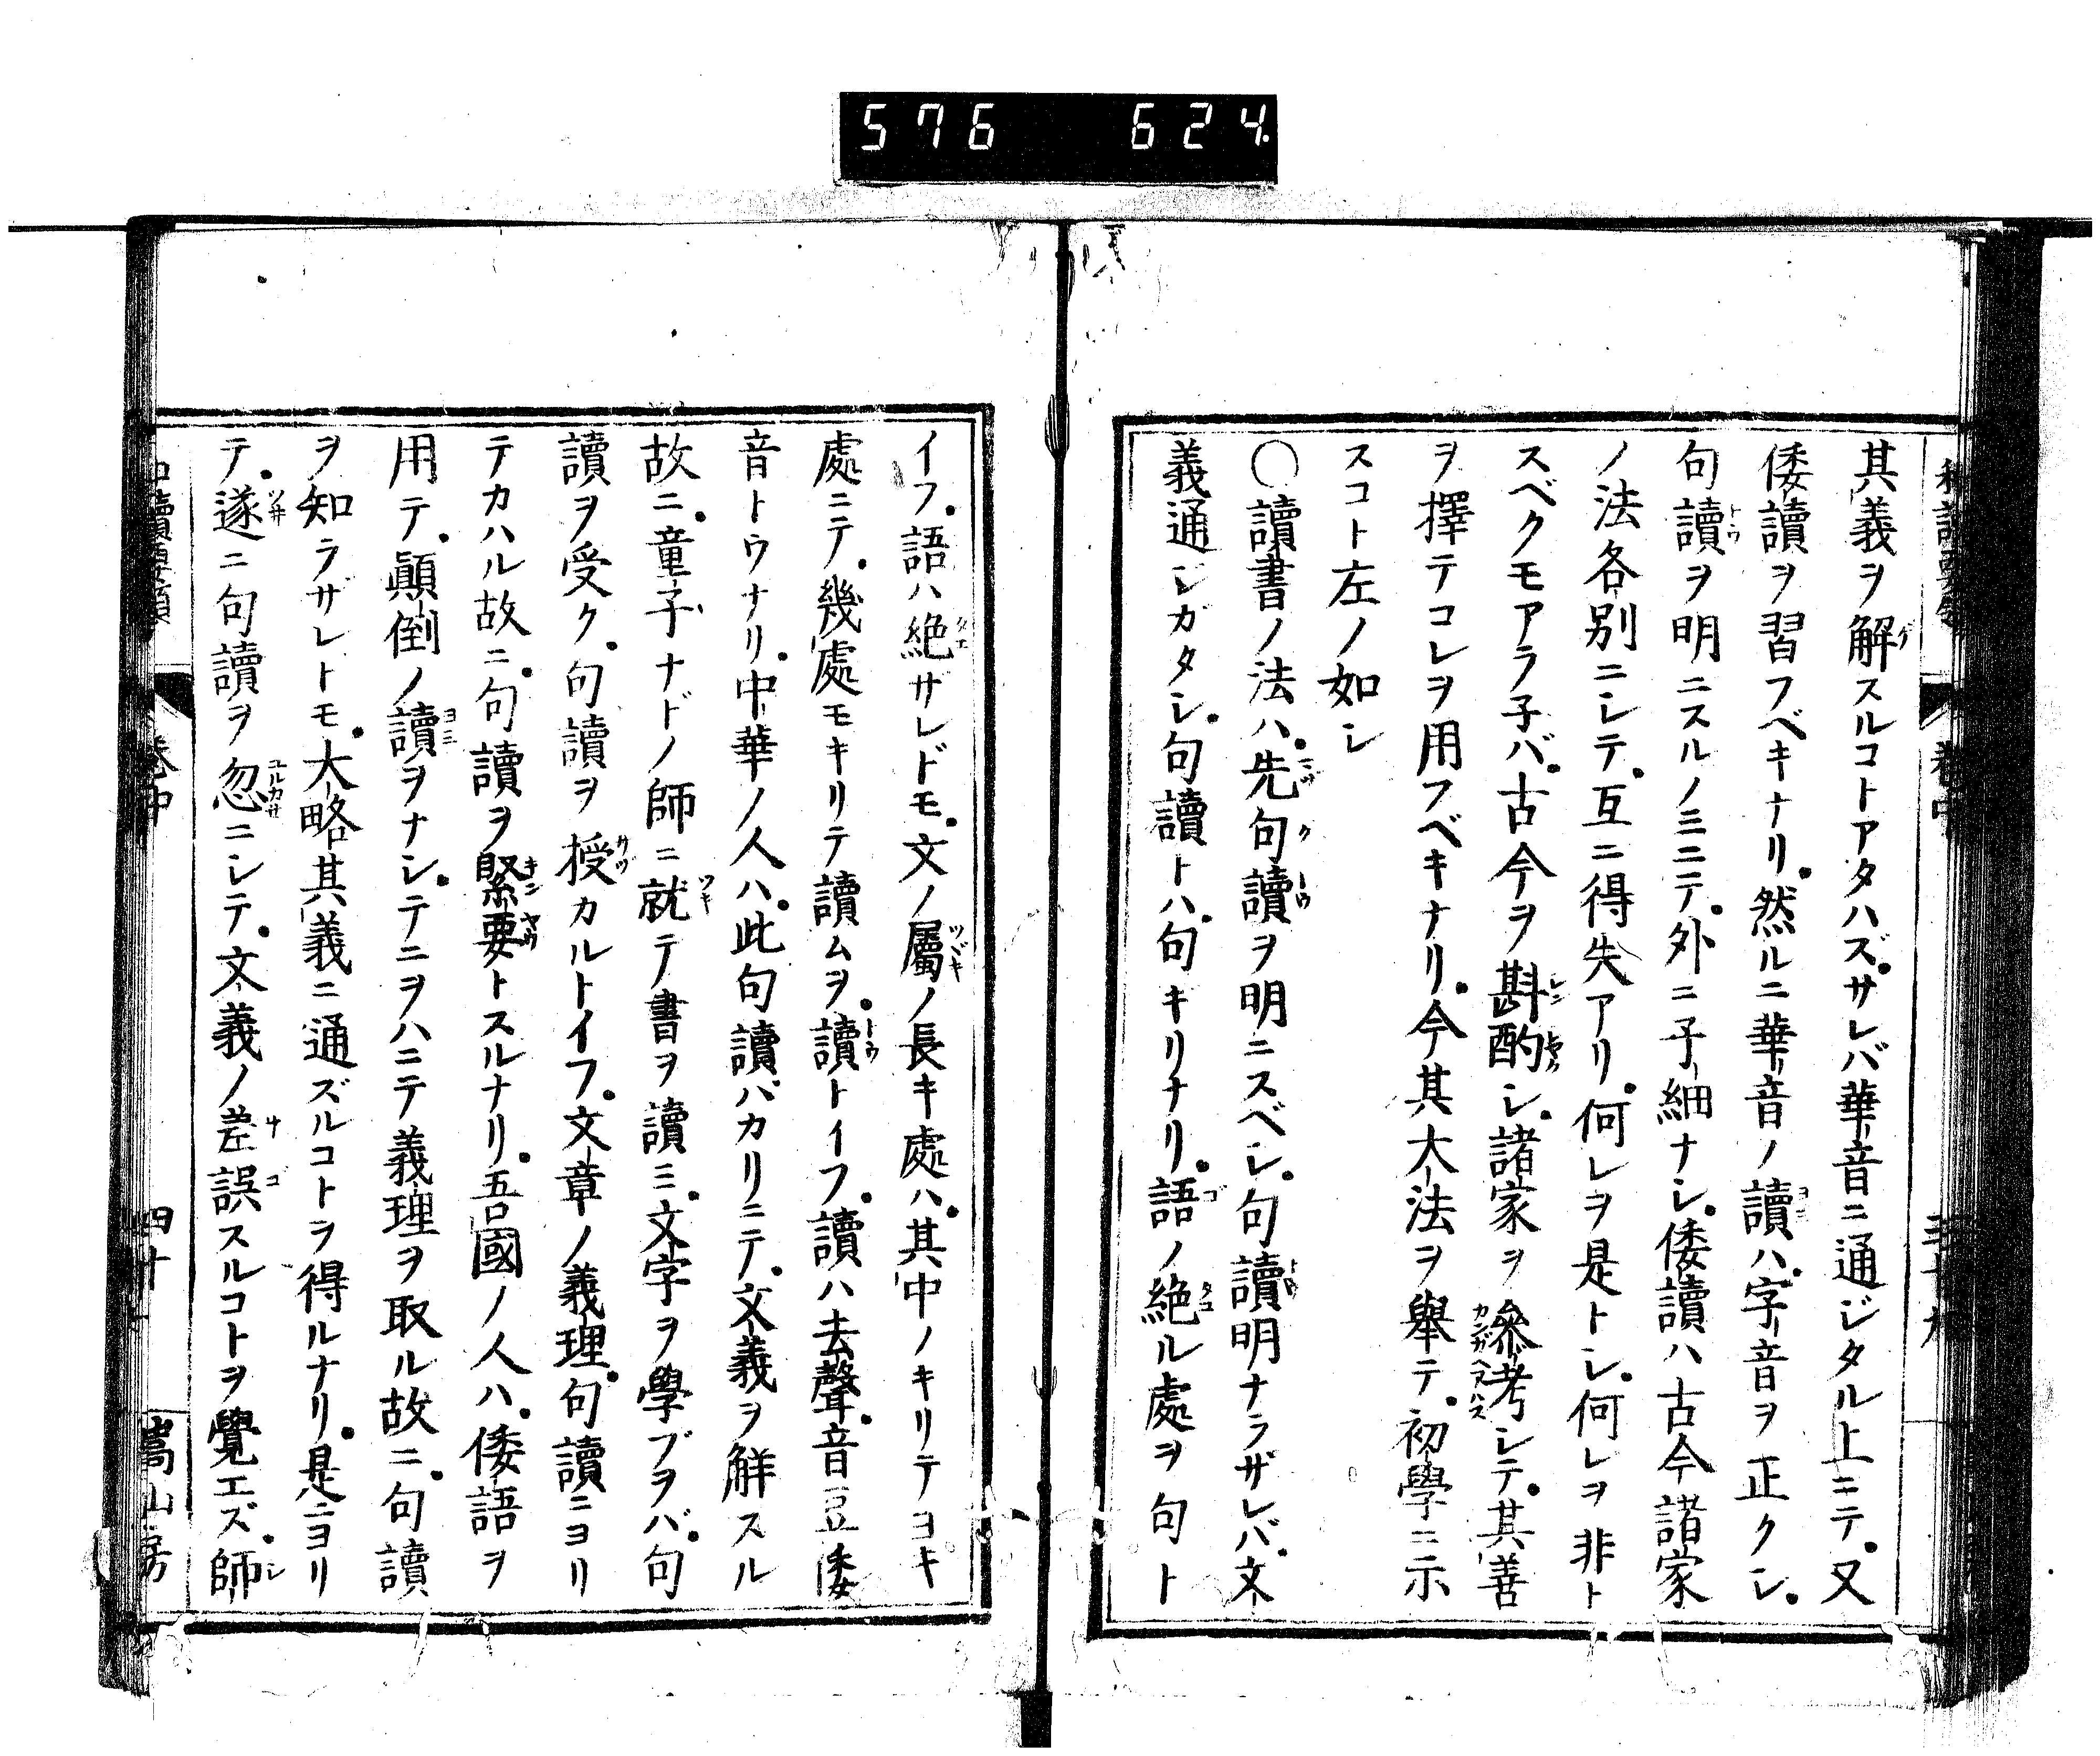 576 624
其義ヲ解スルコトアタハズ。サレバ華音ニ通ジタル上ニテ。又
倭讀ヲ習フベキナリ。然ルニ華音ノ讀ハ。字音ヲ正クシ。
句讀ヲ明ニスルノミニテ。外ニ子細ナシ。倭讀ハ古今諸家
ノ法各別ニシテ。互ニ得失アリ。何レヲ是トシ。何レヲ非ト
スベクモアラ子バ。古今ヲ斟酌シ。諸家ヲ參考シテ。其善
ヲ擇テコレヲ用フベキナリ。今其大法ヲ舉テ。初學ニ示
スコト左ノ如シ
〇讀書ノ法ハ。先句讀ヲ明ニスベシ。句讀明ナラザレバ。文
義通ジガタシ。句讀トハ。句キリナリ。語ノ絶ル處ヲ句ト
イフ。語ハ絶サレドモ。文ノ屬ノ長キ處ハ。其中ノキリテヨキ
處ニテ。幾處モキリテ讀ムヲ。讀トイフ。讀ハ去聲。音豆。倭
音トウナリ。中華ノ人ハ。此句讀バカリニテ。文義ヲ解スル
故ニ。童子ナドノ師ニ就テ書ヲ讀ミ。文字ヲ學ブヲバ。句
讀ヲ受ク。句讀ヲ授カルトイフ。文章ノ義理。句讀ニヨリ
テカハル故ニ。句讀ヲ緊要トスルナリ。吾國ノ人ハ。倭語ヲ
用テ。顚倒ノ讀ヲナシ。テニヲハニテ義理ヲ取ル故ニ。句讀
ヲ知ラザレトモ。大略其義ニ通ズルコトヲ得ルナリ。是ニヨリ
テ。遂ニ句讀ヲ忽ニシテ。文義ノ差誤スルコトヲ覺エズ。師
卷中
四十
嵩山房